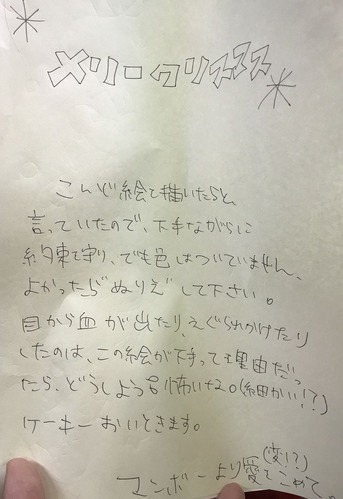 メリークリスマス
こんど絵を描いたらと、
言っていたので、下手ながらに
約束を守り、でも色はついていません、
よかったらぬりえして下さい。
目から血が出たり、えぐられかけたり
したのは、この絵が下手って理由だっ
たら、どうしようも怖いな。(細かい!?)
ケーキーおいときます。
(変!?)
マンボーより愛をこめて。